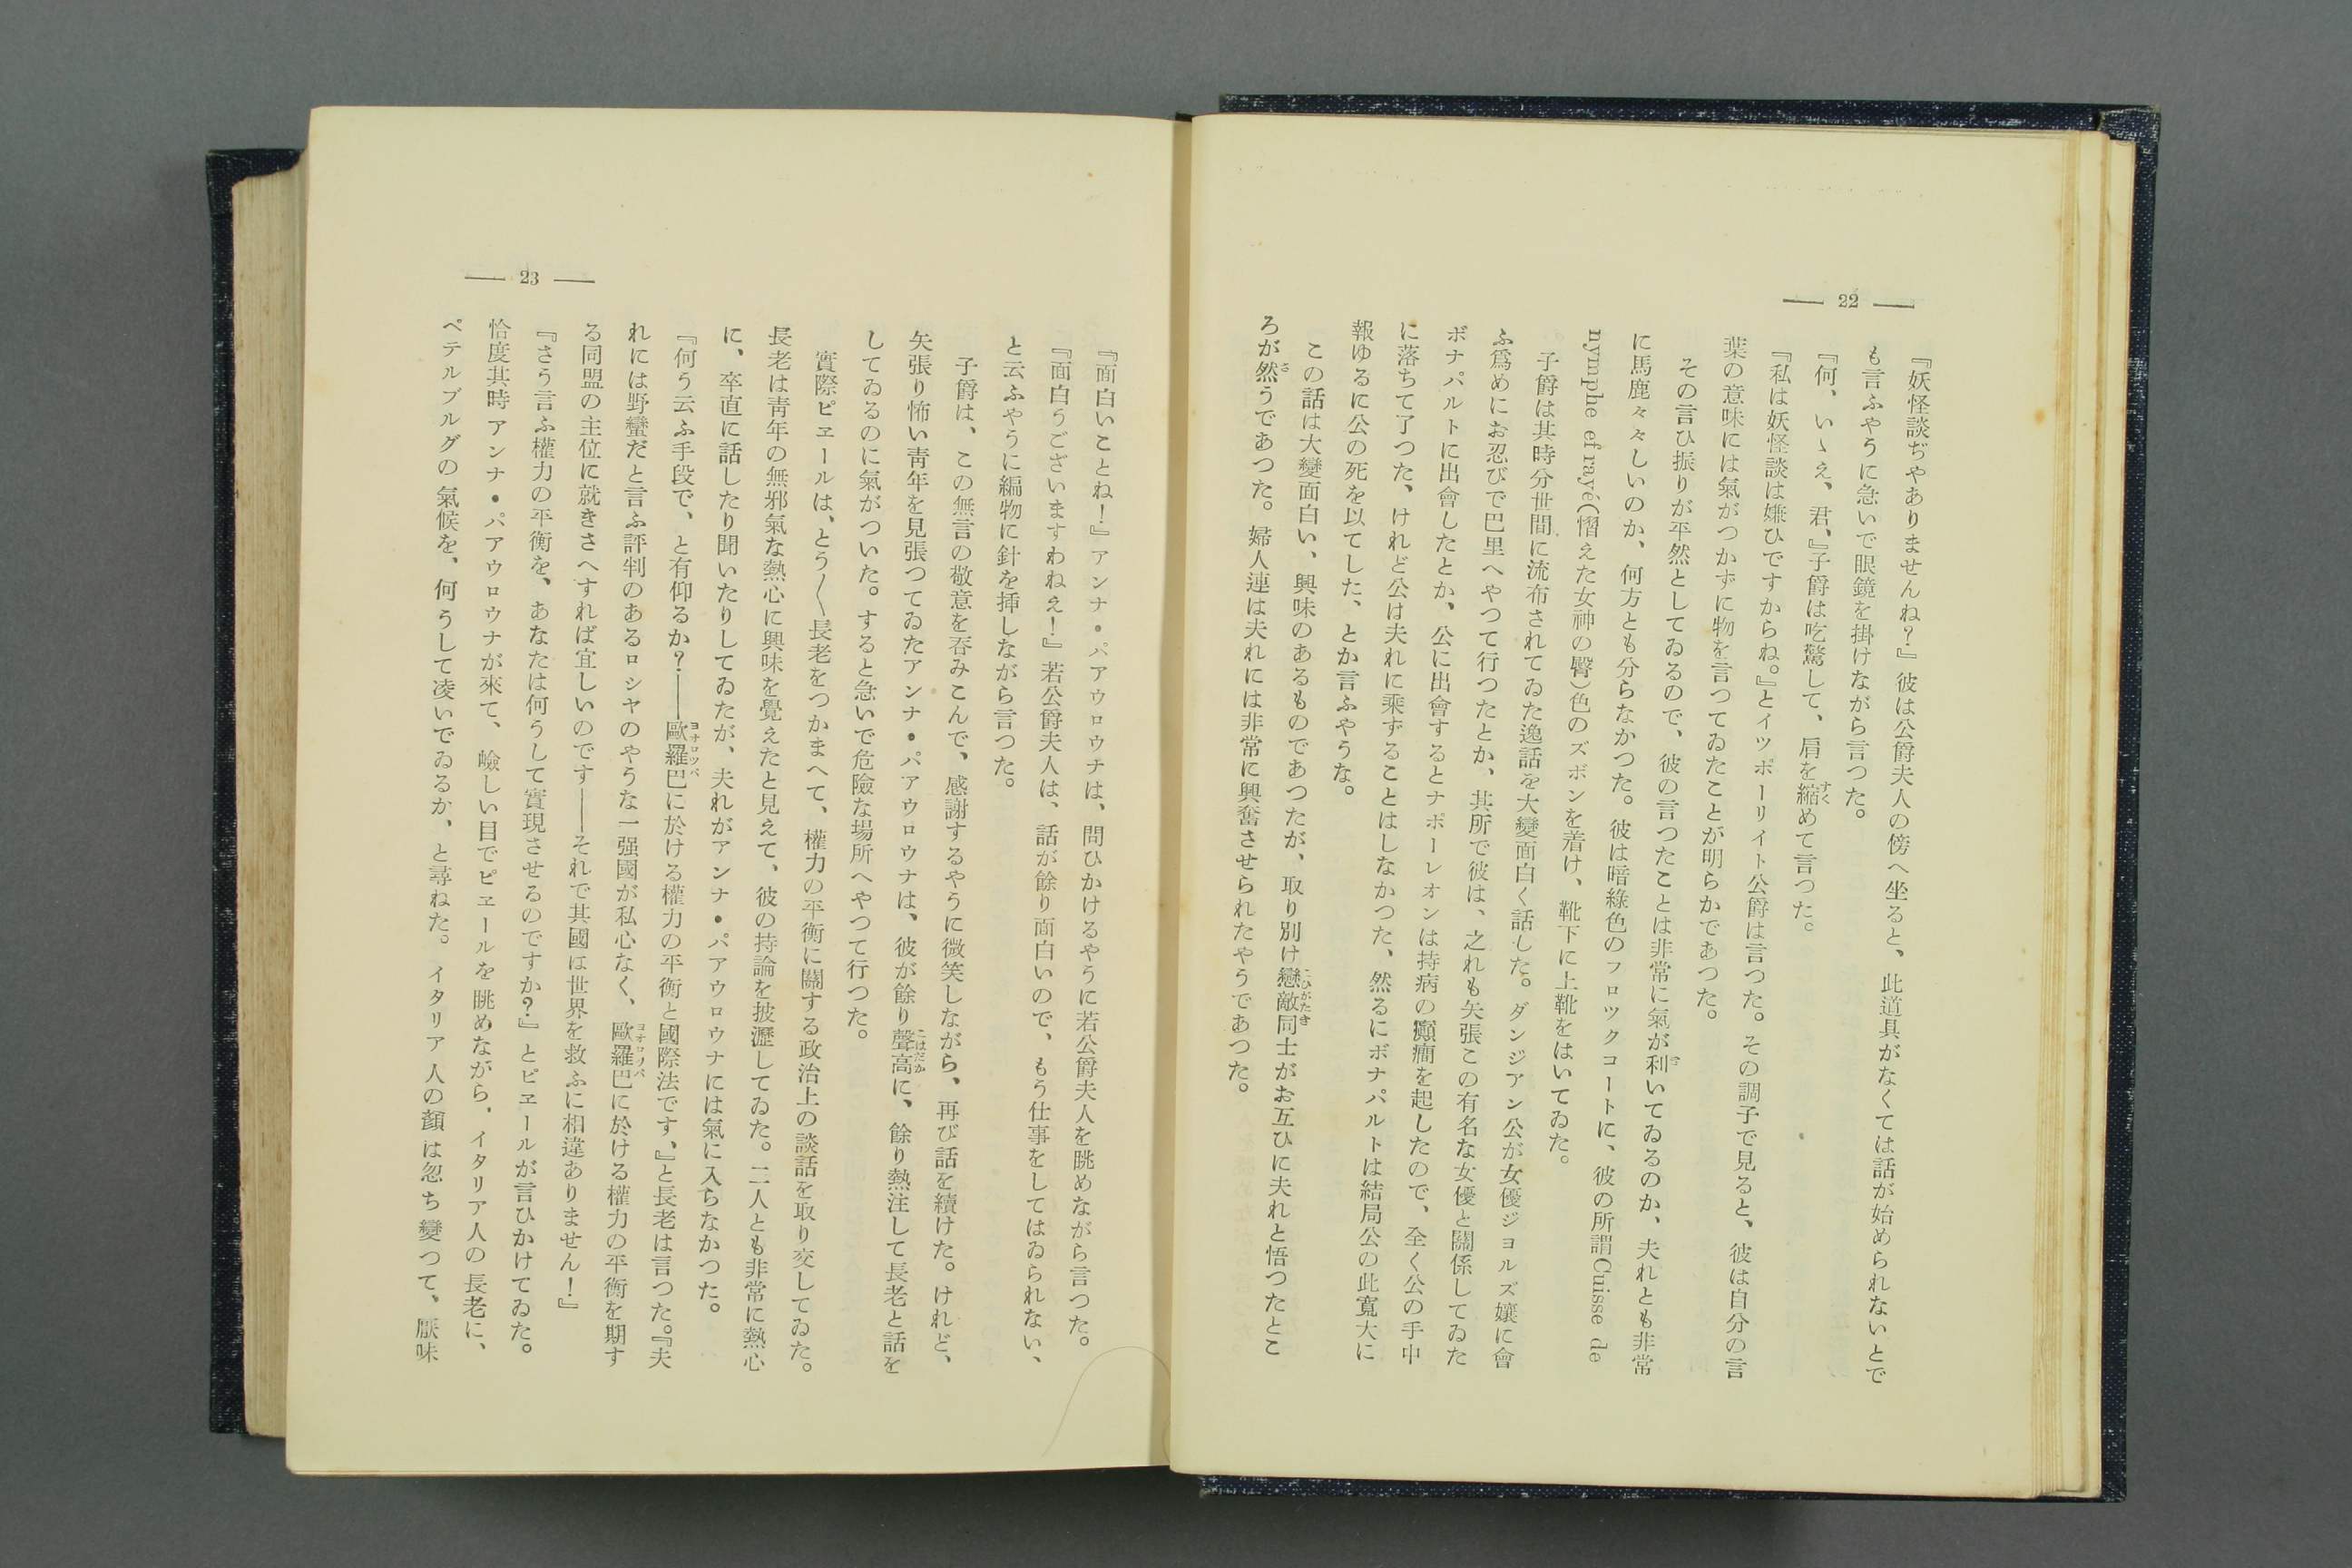 — 22 —
『妖怪談ぢやありませんね？』彼は公爵夫人の傍へ坐ると、此道具がなくては話が始められないとで
も言ふやうに急いで眼鏡を掛けながら言つた。
『何、いゝえ、君、』子爵は吃驚して、肩を縮めて言つた。
『私は妖怪談は嫌ひですからね。』とイツポーリイト公爵は言つた。その調子で見ると、彼は自分の言
葉の意味には氣がつかずに物を言つてゐたことが明らかであつた。
その言ひ振りが平然としてゐるので、彼の言つたことは非常に氣が利いてゐるのか、夫れとも非常
に馬鹿々々しいのか、何方とも分らなかつた。彼は暗綠色のフロツクコートに、彼の所謂Cuisse de
nymphe efrayé（慴えた女神の臀）色のズボンを着け、靴下に上靴をはいてゐた。
子爵は其時分世間に流布されてゐた逸話を大變面白く話した。ダンジアン公が女優ジヨルズ孃に會
ふ爲めにお忍びで巴里へやつて行つたとか、其所で彼は、之れも矢張この有名な女優と關係してゐた
ボナパルトに出會したとか、公に出會するとナポーレオンは持病の癲癇を起したので、全く公の手中
に落ちて了つた、けれど公は夫れに乘ずることはしなかつた、然るにボナパルトは結局公の此寬大に
報ゆるに公の死を以てした、とか言ふやうな。
この話は大變面白い、興味のあるものであつたが、取り別け戀敵同士がお互ひに夫れと悟つたとこ
ろが然うであつた。婦人連は夫れには非常に興奮させられたやうであつた。
— 23 —
『面白いことね！』アンナ・パアウロウナは、問ひかけるやうに若公爵夫人を眺めながら言つた。
『面白うございますわねえ！』若公爵夫人は、話が餘り面白いので、もう仕事をしてはゐられない、
と云ふやうに編物に針を挿しながら言つた。
子爵は、この無言の敬意を呑みこんで、感謝するやうに微笑しながら、再び話を續けた。けれど、
矢張り怖い靑年を見張つてゐたアンナ・パアウロウナは、彼が餘り聲高に、餘り熱注して長老と話を
してゐるのに氣がついた。すると急いで危險な場所へやつて行つた。
實際ピヱールは、とう〳〵長老をつかまへて、權力の平衡に關する政治上の談話を取り交してゐた。
長老は靑年の無邪氣な熱心に興味を覺えたと見えて、彼の持論を披瀝してゐた。二人とも非常に熱心
に、卒直に話したり聞いたりしてゐたが、夫れがアンナ・パアウロウナには氣に入らなかつた。
『何う云ふ手段で、と有仰るか？――歐羅巴に於ける權力の平衡と國際法です、』と長老は言つた。『夫
れには野蠻だと言ふ評判のあるロシヤのやうな一强國が私心なく、歐羅巴に於ける權力の平衡を期す
る同盟の主位に就きさへすれば宜しいのです――それで其國は世界を救ふに相違ありません！』
『さう言ふ權力の平衡を、あなたは何うして實現させるのですか？』とピヱールが言ひかけてゐた。
恰度其時アンナ・パアウロウナが來て、嶮しい目でピヱールを眺めながら、イタリア人の長老に、
ペテルブルグの氣候を、何うして凌いでゐるか、と尋ねた。イタリア人の顏は忽ち變つて、厭味